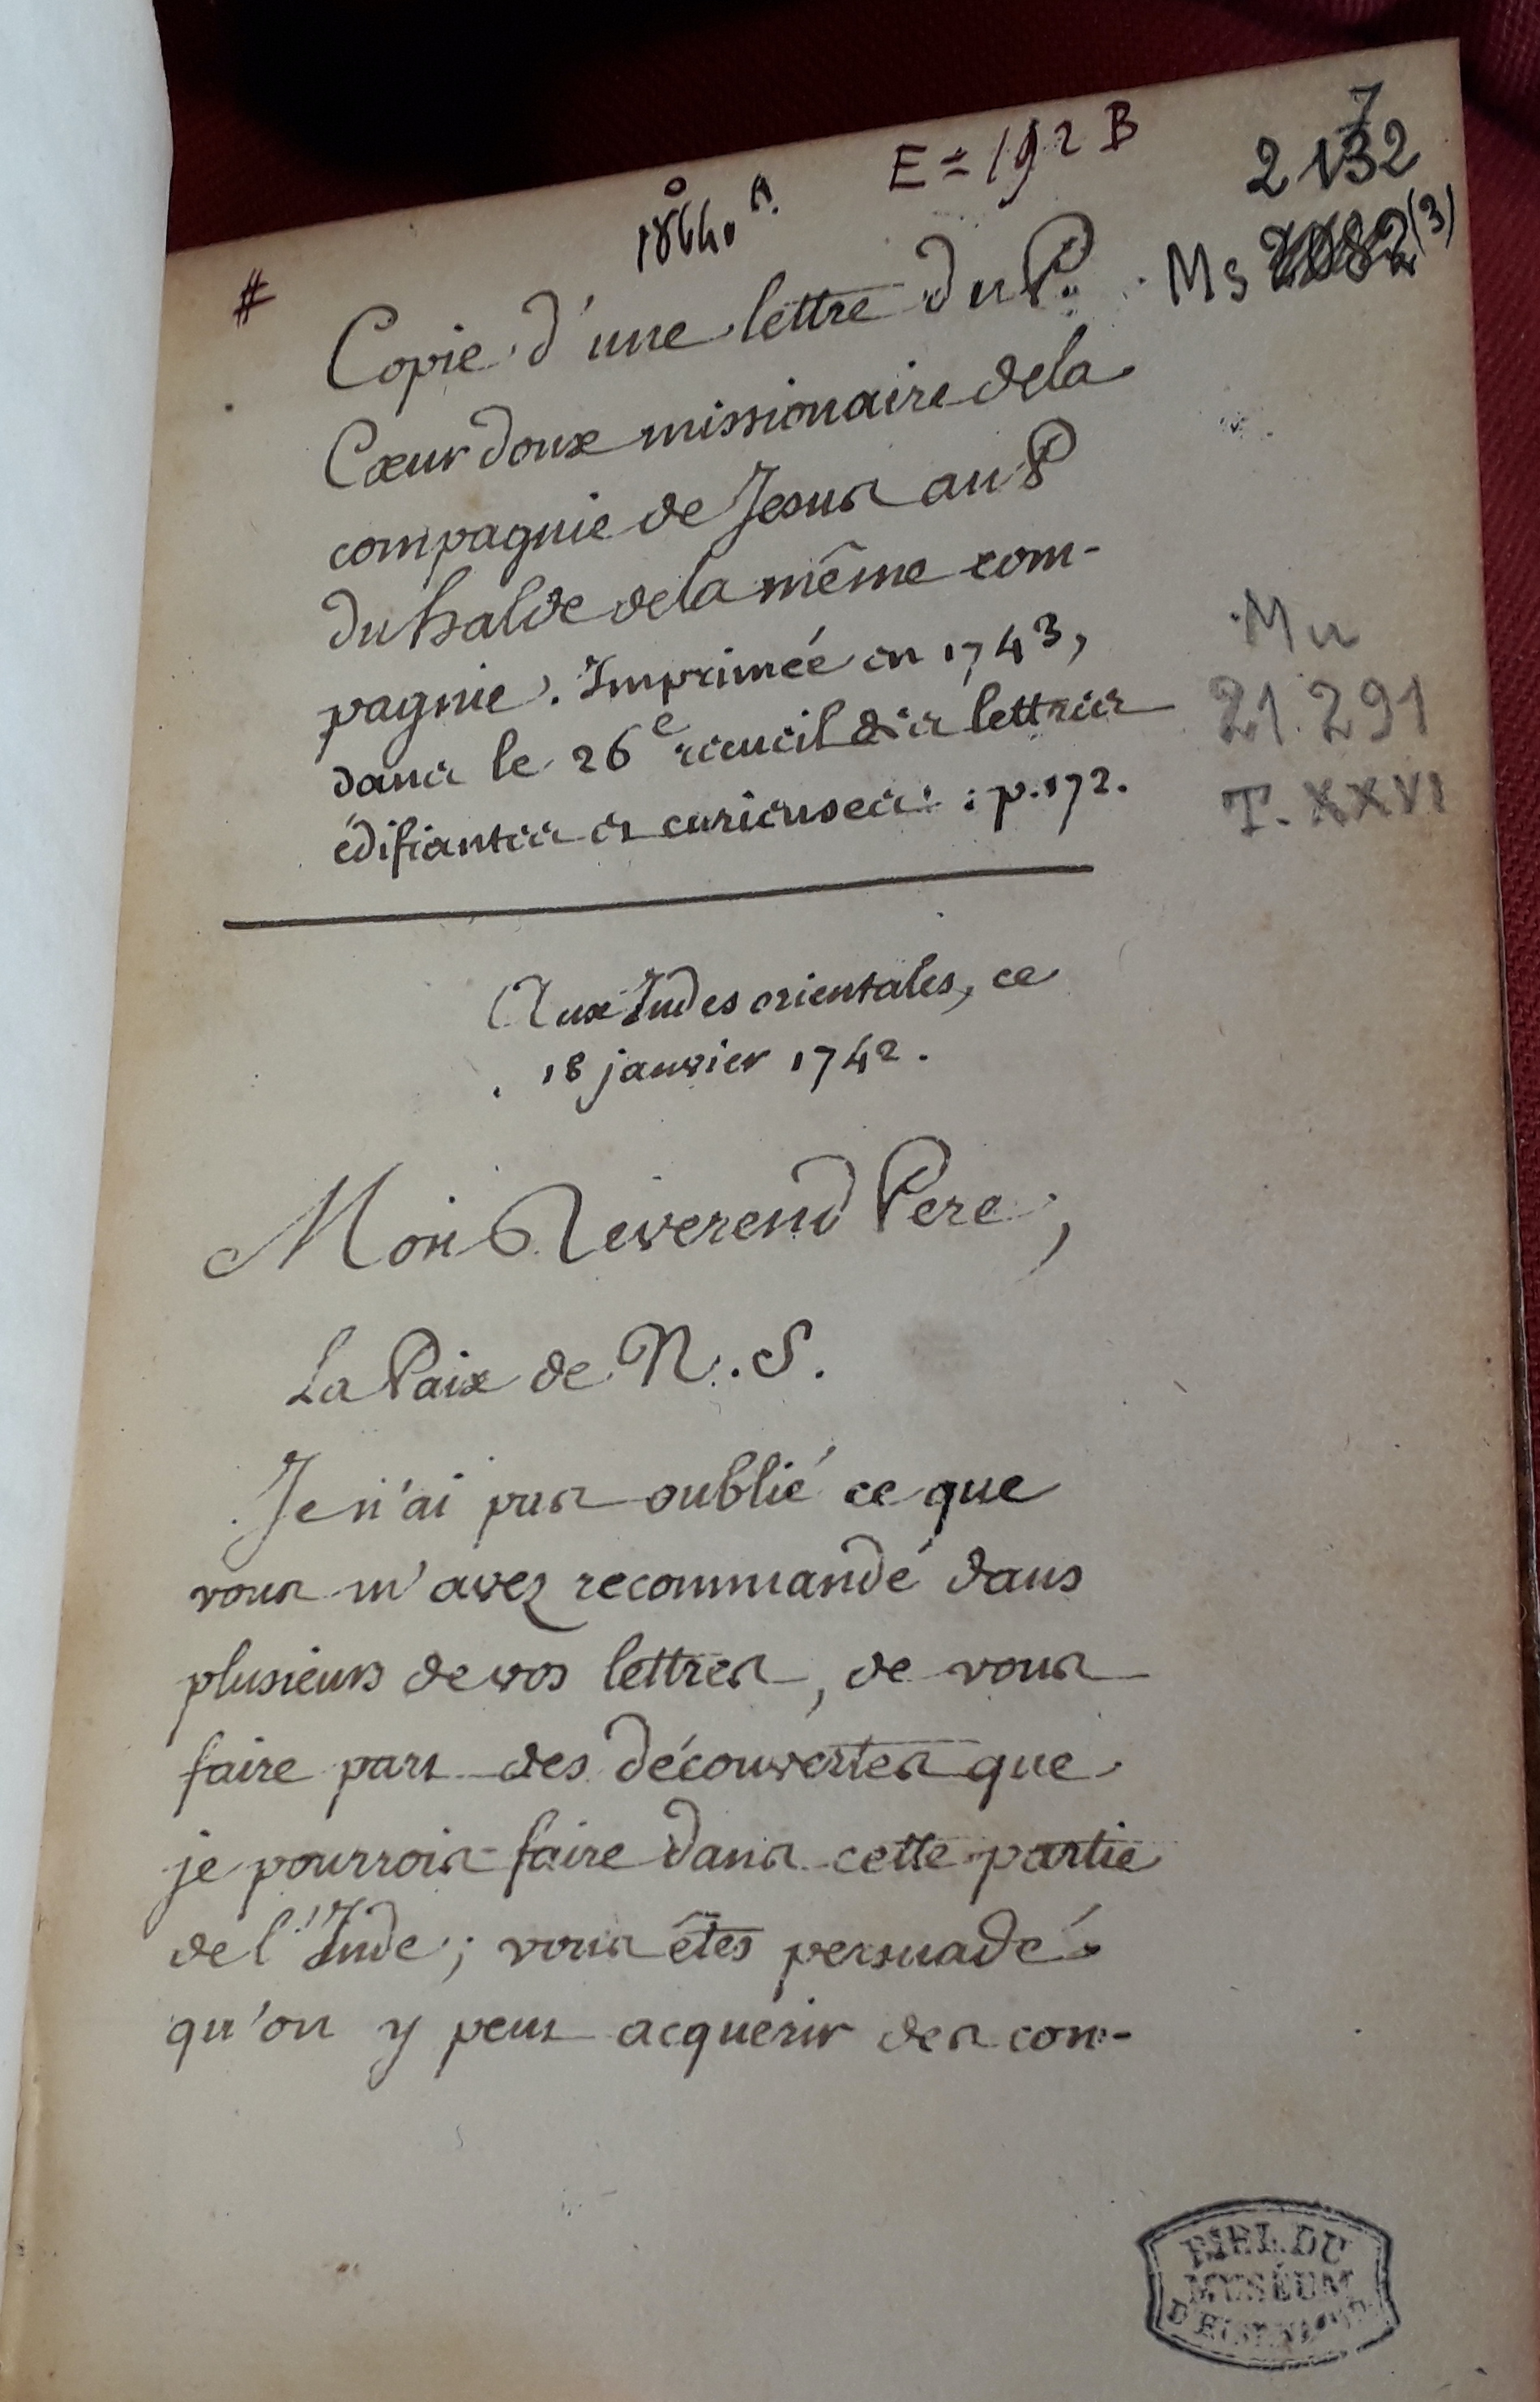 E = 192 B
2132
7
#
Copie d'une lettre du P.
Ms (3)
Cœurdoux missionaire dela
compagnie de Jesus au P
du halde dela même com-
pagnie. Imprimée en 1743,
dans le 26e recueil des lettres
édifiantes et curieuses : p. 172.
Mu
21.291
T. XXVI
Aux Indes orientales, ce
18 janvier 1742.
Mon Reverend Pere,
La Paix de N. S.
Je n'ai pas oublié ce que
vous m'avez recommandé dans
plusieurs de vos lettres, de vous
faire part des découvertes que
je pourrois faire dans cette partie
de l'Inde; vous êtes persuadé
qu'on y peut acquérir des con-
BIBL. DU
MUSÉUM